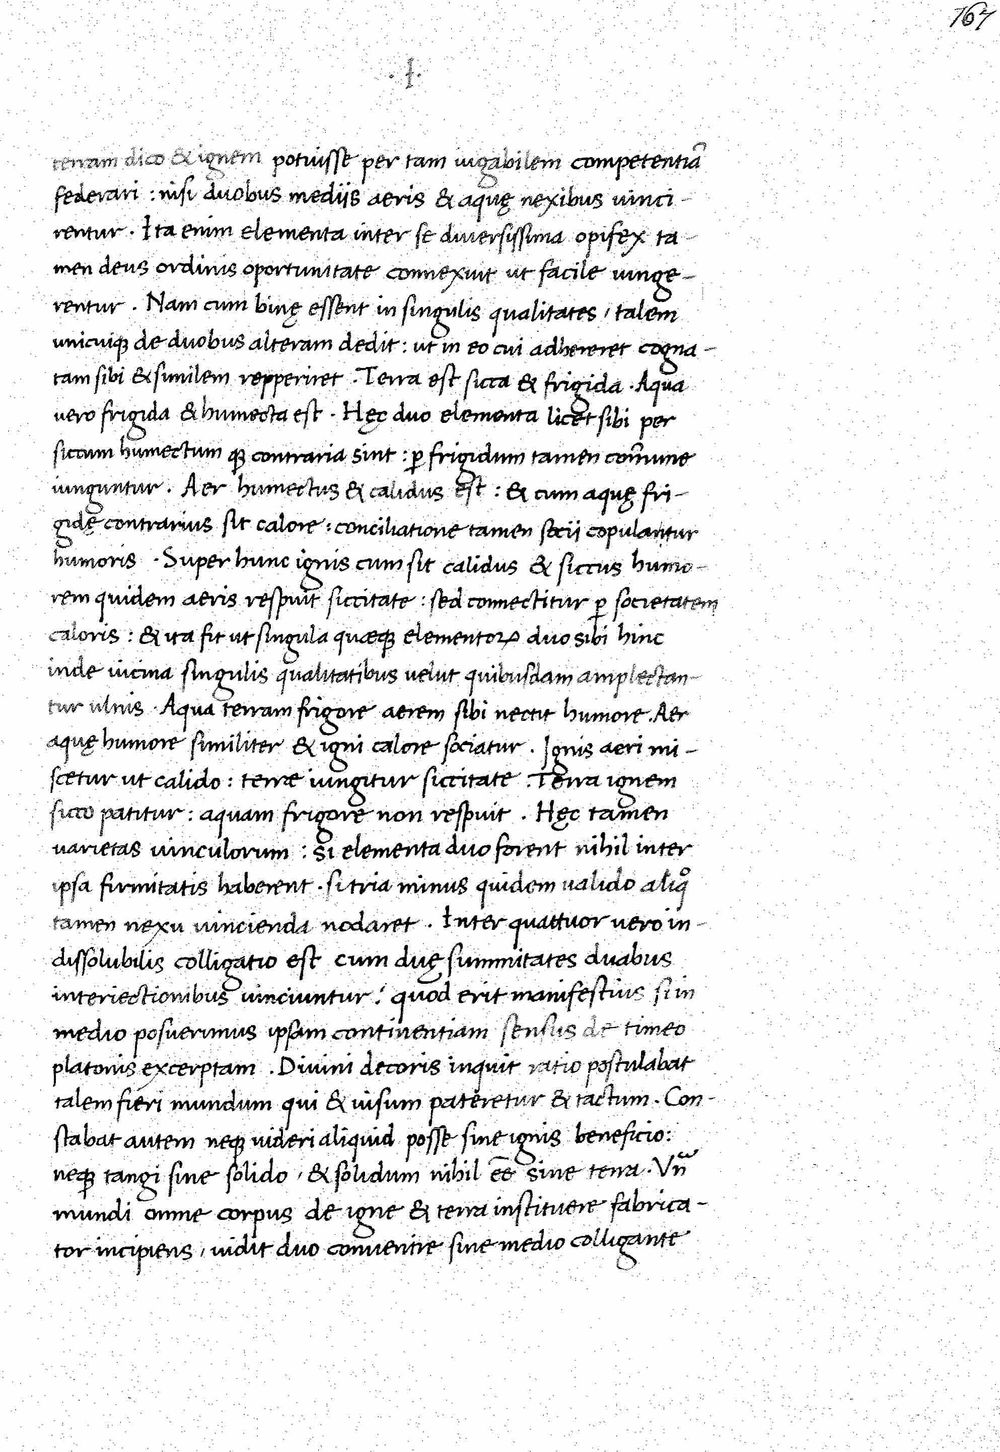 167
.I.
terram dico & ignem potuisse per tam iugabilem competentiā
federari : nisi duobus mediis aeris & aquę nexibus uinci-
rentur . Ita enim elementa inter se diuersissima opifex ta-
men deus ordinis oportunitate connexuit ut facile iunge-
rentur . Nam cum binę essent in singulis qualitates , talem
unicuiqꝫ de duobus alteram dedit : ut in eo cui adhereret cogna-
tam sibi & similem repperiret . Terra est sicca & frigida . Aqua
uero frigida & humecta est . Hęc duo elementa licet sibi per
siccum humectum qꝫ contraria sint : ꝑ frigidum tamen com̄une
iunguntur . Aer humectus & calidus est : & cum aquę fri-
gidę contrarius sit calore : conciliatione tamen socii copulantur
humoris . Super hunc ignis cum sit calidus & siccus humo-
rem quidem aeris respuit siccitate : sed connectitur ꝑ societatem
caloris : & ita fit ut singula quæqꝫ elementoꝝ duo sibi hinc
inde uicina singulis qualitatibus uelut quibusdam amplectan-
tur ulnis . Aqua terram frigore aerem sibi nectit humore . Aer
aquę humore similiter & igni calore sociatur . Ignis aeri mi-
scetur ut calido : terræ iungitur siccitate . Terra ignem
sicco patitur : aquam frigore non respuit . Hęc tamen
uarietas uinculorum : si elementa duo forent nihil inter
ipsa firmitatis haberent . si tria minus quidem ualido aliqͦ
tamen nexu uincienda nodaret . Inter quattuor uero in-
dissolubilis colligatio est cum duę summitates duabus
interiectionibus uinciuntur : quod erit manifestius si in
medio posuerimus ipsam continentiam sensus de timeo
platonis excerptam . Diuini decoris inquit ratio postulabat
talem fieri mundum qui & uisum pateretur & tactum . Con-
stabat autem neqꝫ uideri aliquid posse sine ignis beneficio :
neqꝫ tangi sine solido , & solidum nihil ēē sine terra . Vn̄
mundi omne corpus de igne & terra instituere fabrica-
tor incipiens , uidit duo conuenire sine medio colligante